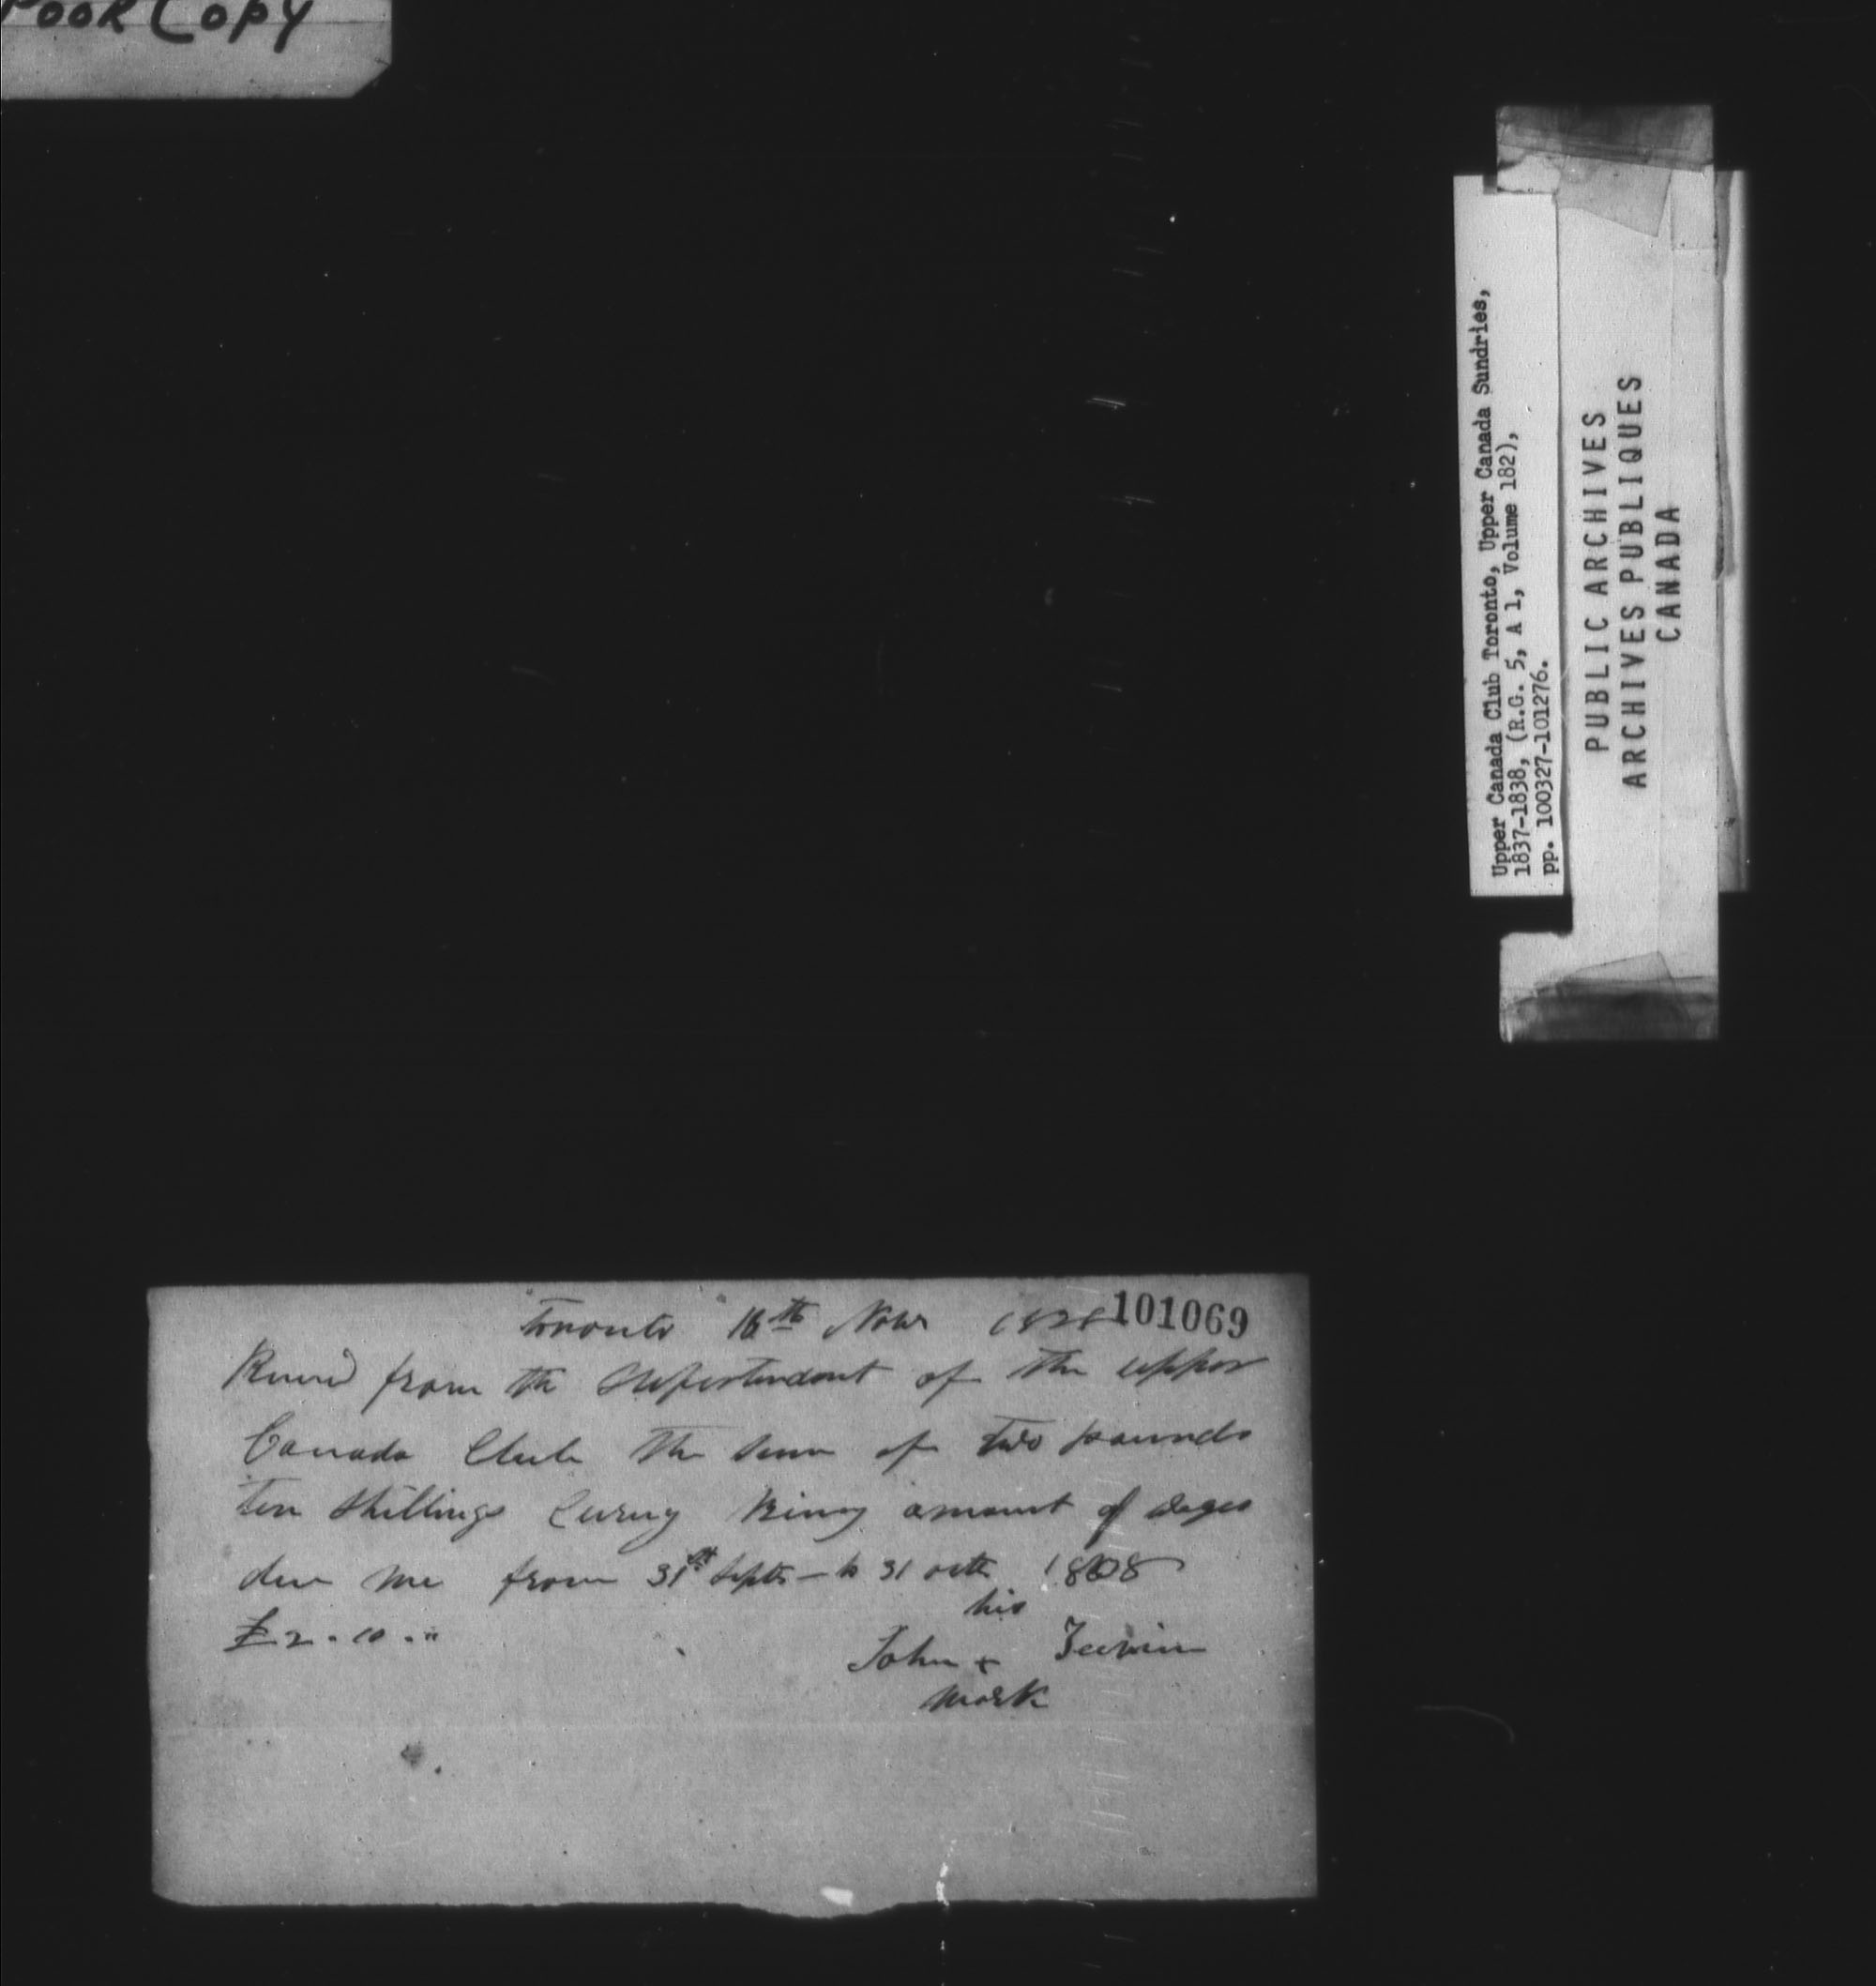 Poor Copy
Upper Canada Club Toronto, Upper Canada Sundries,
1837-1838, (R.G. 5, A 1, Volume 182),
pp. 100327-101276.
PUBLIC ARCHIVES
ARCHIVES PUBLIQUES
CANADA
101069
Toronto 16th Novr 1838
from the of the upper
Canada Club The sum of two pounds
Ten Shillings Being amount of wages
due me from 31st Septr - to 31 octr 1838
his
£2.10."
John +
mark